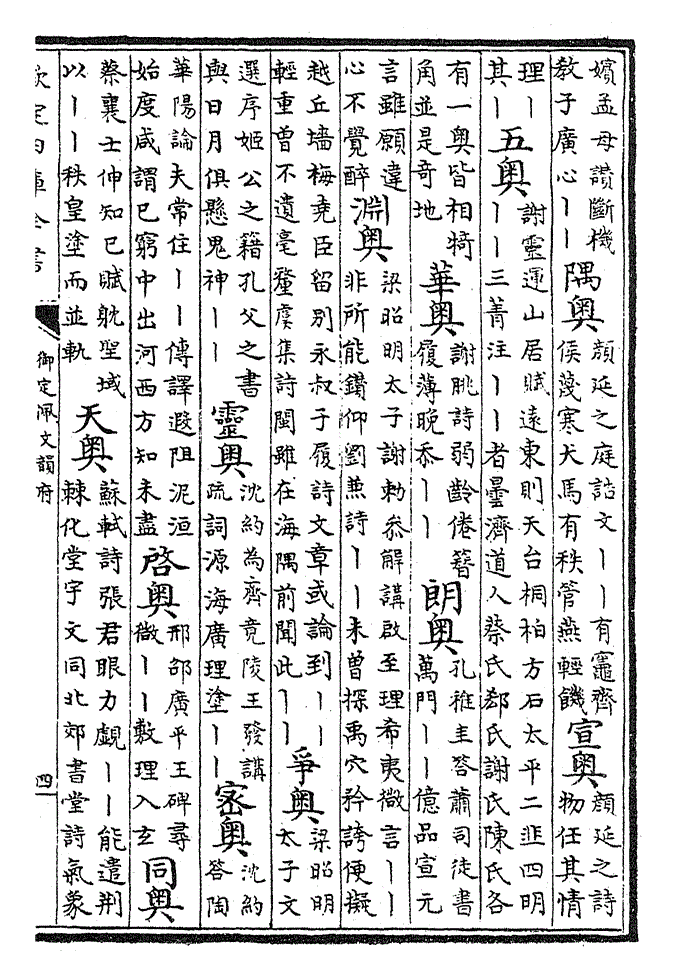 嬪孟母讚斷機
教子廣心｜｜
隅奥
顔延之庭誥文｜｜有竈齊
侯蔑寒犬馬有秩管燕輕饑
宣奥
顔延之詩
物任其情
理｜
其｜
五奥
謝靈運山居賦逺東則天台桐柏方石太平二韭四明
｜｜三菁注｜｜者曇濟道人蔡氏郄氏謝氏陳氏各
有一奥皆相犄
角並是奇地
華奥
謝朓詩弱齡倦簪
履薄晚忝｜｜
朗奥
孔稚圭答蕭司徒書
萬門｜｜億品宣元
言雖願違
心不覺醉
淵奥
梁昭明太子謝勅叅解講啟至理希夷微言｜｜
非所能鑚仰劉兼詩｜｜未曾探禹穴矜誇便擬
越丘墻梅堯臣留別永叔子履詩文章或論到｜｜
輕重曾不遺毫釐虞集詩閩雖在海隅前聞此｜｜
爭奥
梁昭明
太子文
選序姬公之籍孔父之書
與日月俱懸鬼神｜｜
靈奥
沈約為齊竟陵王發講
疏詞源海廣理塗｜｜
密奥
沈約
答陶
華陽論夫常住｜｜傳譯遐阻泥洹
始度咸謂已窮中出河西方知未盡
啓奥
邢邵廣平王碑尋
微｜｜敷理入玄
同奥
蔡襄士伸知已賦躭聖域
以｜｜秩皇塗而並軌
天奥
蘇軾詩張君眼力覷｜｜能遣荆
棘化堂宇文同北郊書堂詩氣象
欽定四庫全書
御定佩文韻府
四